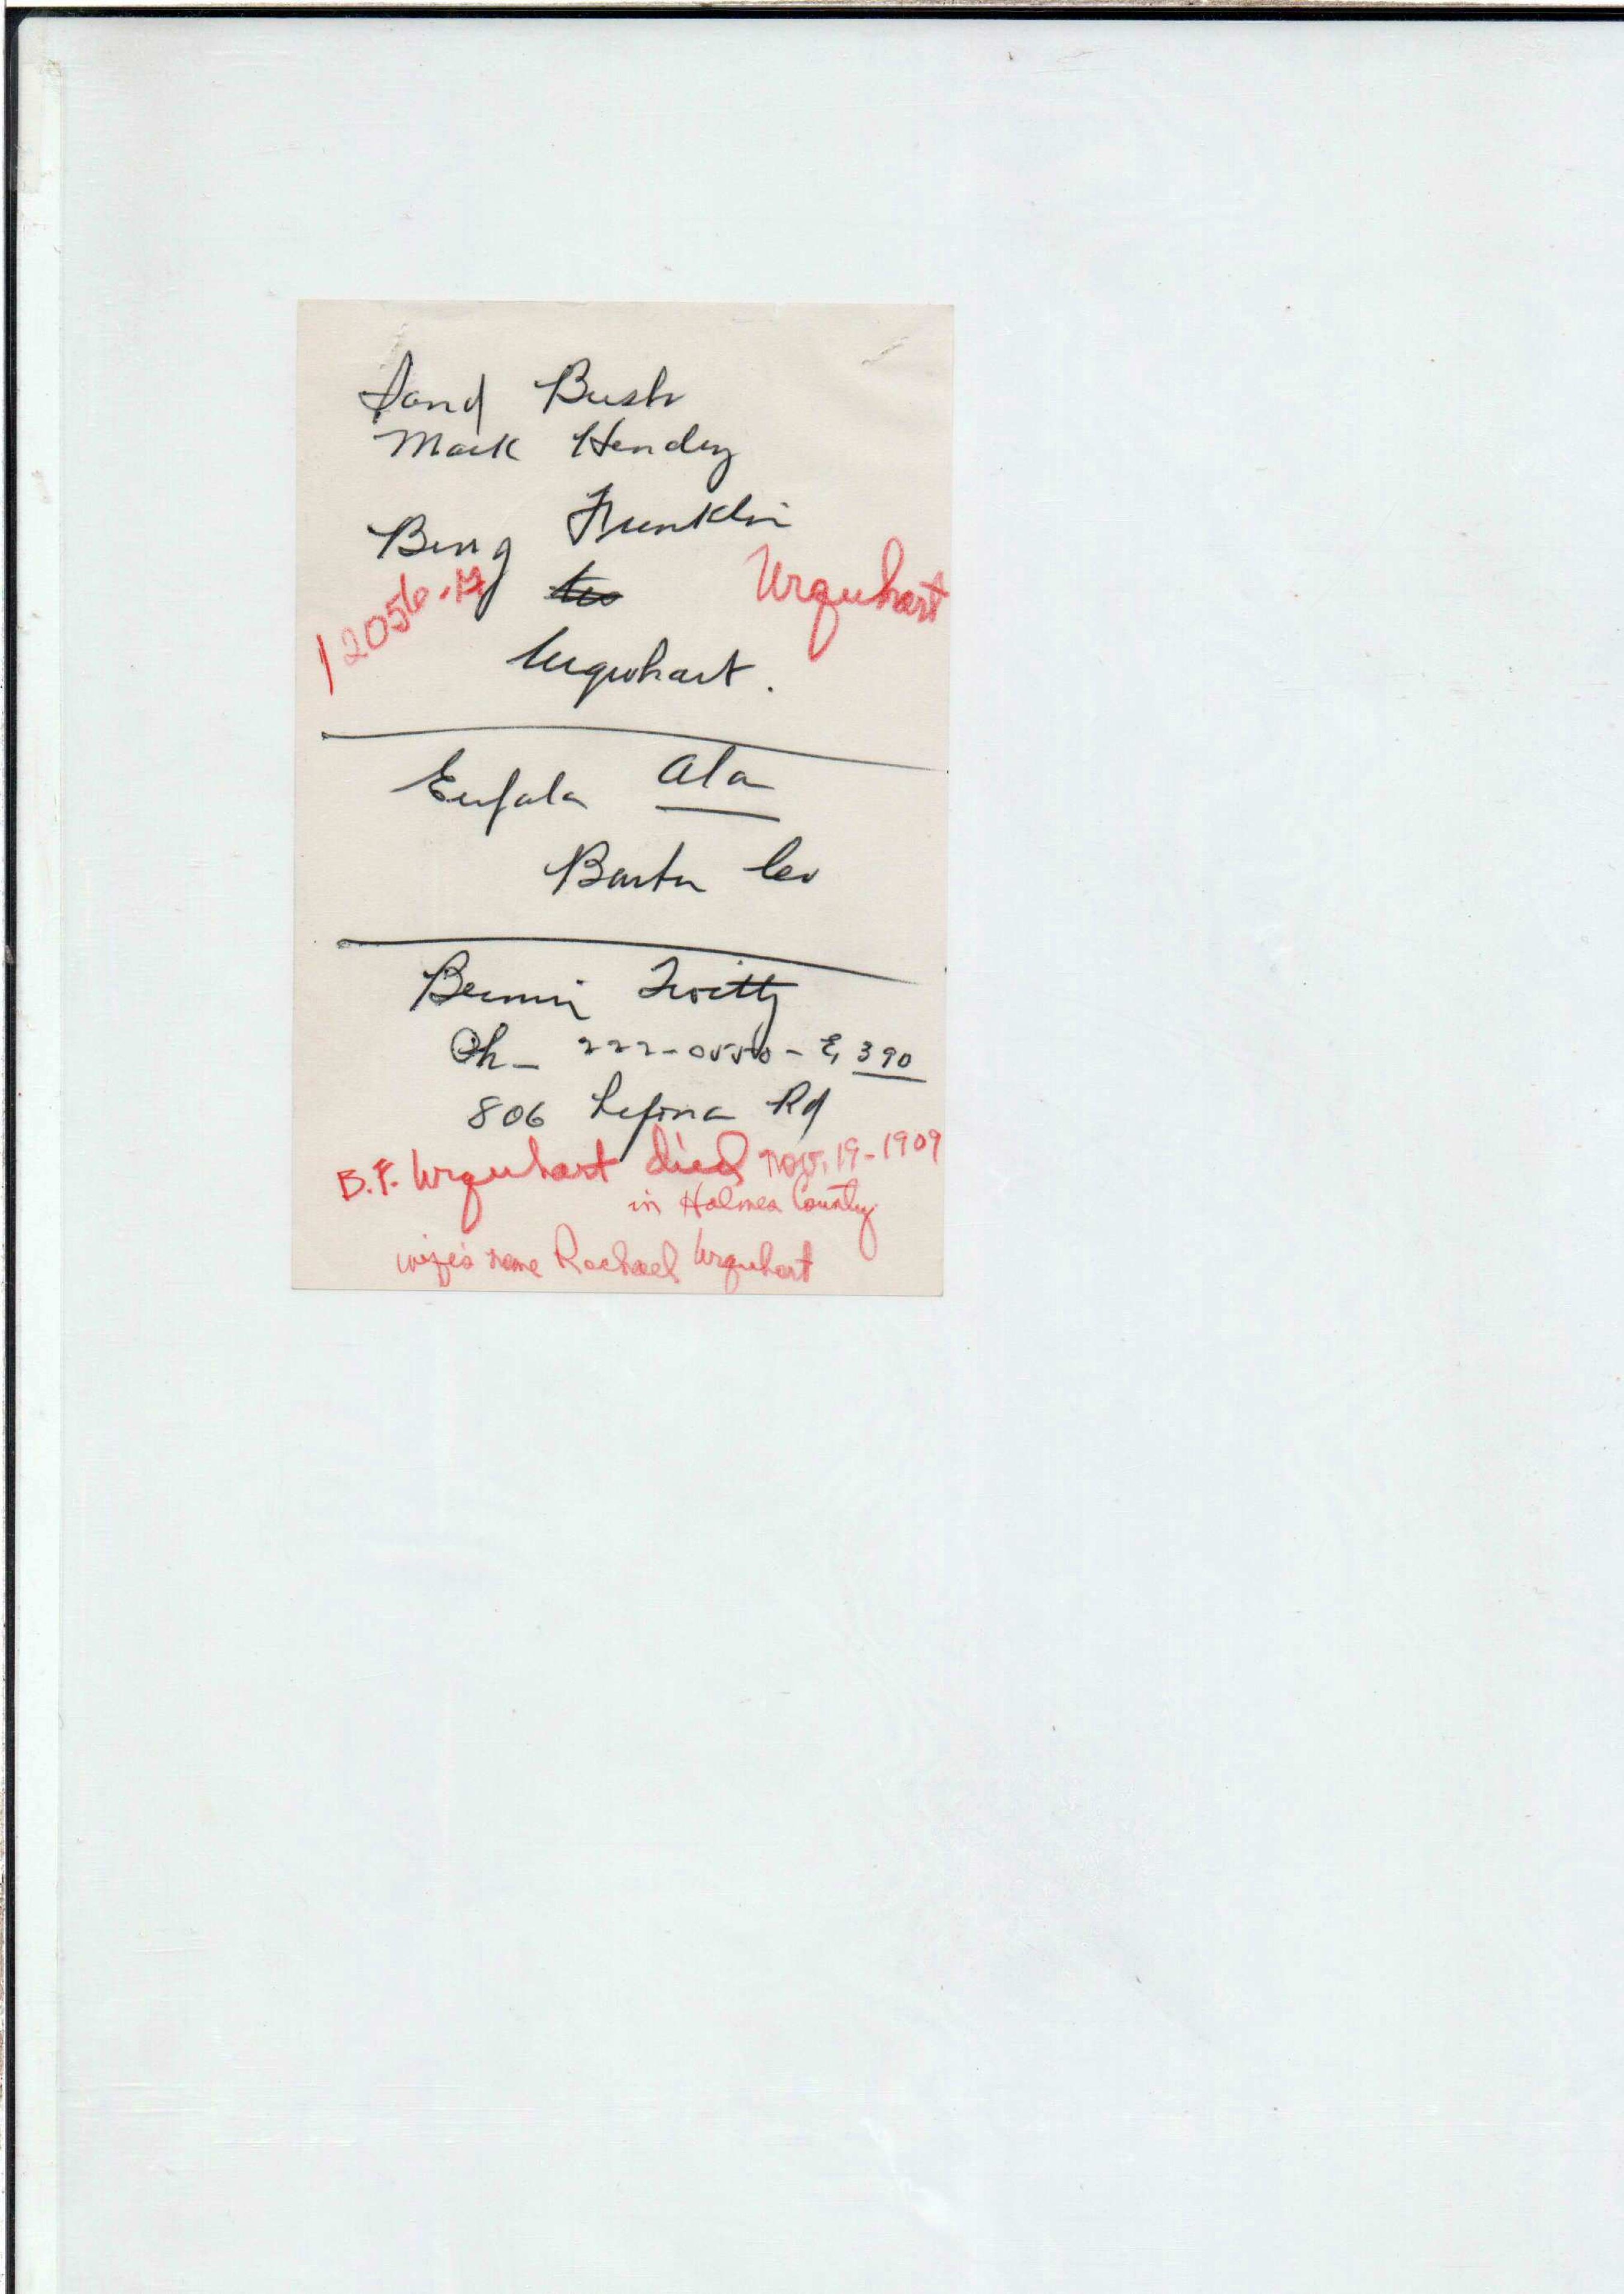 Sand Bush
Mack Hendry
Benj Franklin
Urquhart
12056-
Urquhart.
Eufala Ala
Co
Twitty
Ph- 222-0550-E, 390
806 Rd
B.F. Urquhart died Nov. 19-1909
in Holmes County
wife's name Rachael Urquhart